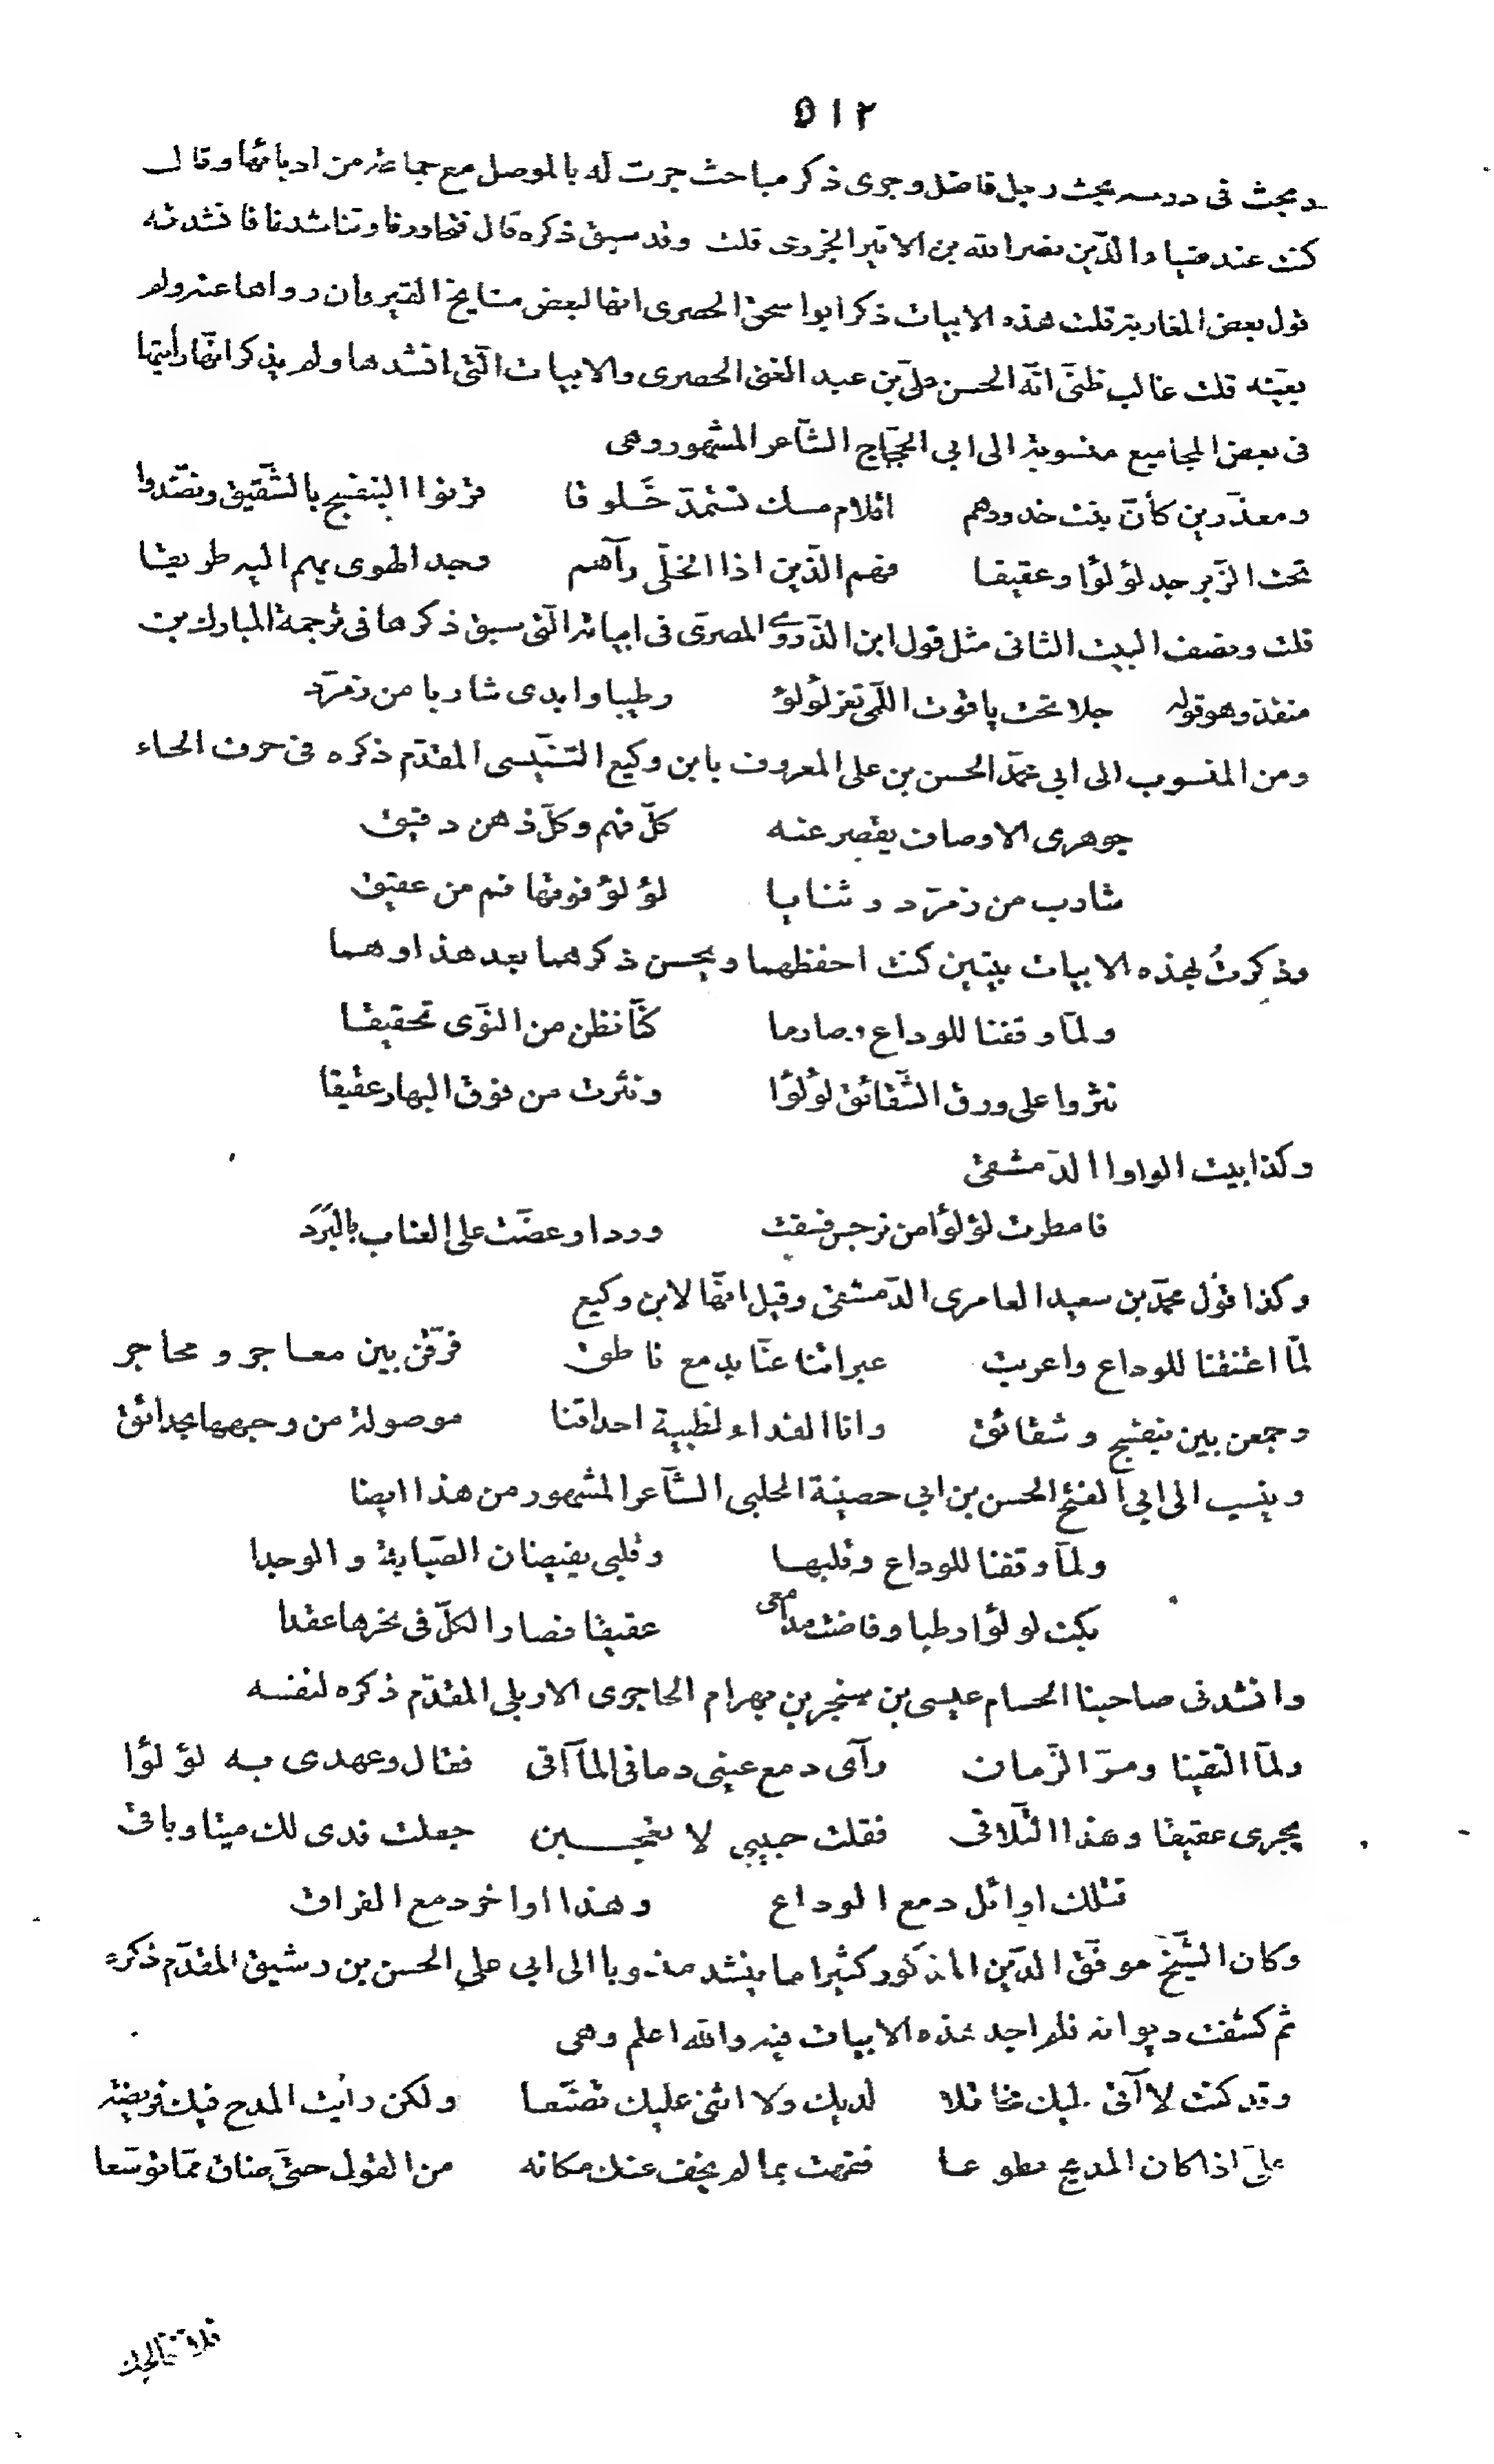 ٥١٢
وبحث فى درسه بحث رجل فاضل وجرى ذكر مباحث جرت له بالموصل مع جماعة من ادبائها وقال
كنت عند ضياء الدّين نصر الله بن الاثير الجزرى قلت وقد سبق ذكره قال فتحاورنا وتناشدنا فانشدته
قول بعض المغاربة قلت هذه الابيات ذكر ابو اسحق الحصرى انها لبعض مشايخ القيروان رواها عنه ولم
يعيّنه قلت غالب ظنّى انّه الحسن علىّ بن عبد الغنى الحصرى والابيات الّتى انشدها ولم يذكر انّها رأيتها
فى بعض المجاميع منسوبة الى ابى الحجّاج الشّاعر المشهور وهى
ومعذّرين كأنّ بنت خدودهم اقلام مسك تستمدّ خَلوقا قرنوا البنفسج بالشّقيق ونضّدوا
تحت الزّبرجد لؤلؤا وعقيقا فهم الّذين اذا الخلّى رآهم وجد الهوى بهم اليه طريقا
قلت ونصف البيت الثانى مثل قول ابن الذّروى المصرىّ فى ابياته الّتى سبق ذكرها فى ترجمة المبارك بن
منقذ وهو قوله جلا تحت ياقوت اللّمى ثغر لؤلؤ رطيبا وابدى شاربا من زمرّد
ومن المنسوب الى ابى محمّد الحسن بن على المعروف بابن وكيع التنّيسى المقدّم ذكره فى حرف الحاء
جوهرى الاوصاف يقصر عنه كلّ فهم وكلّ ذهن دقيق
شارب من زمرّد وثنايا لؤلؤ فوقها فم من عقيق
وذكرتُ بهذه الابيات بيتين كنت احفظهما ويحسن ذكرهما بعد هذا وهما
ولمّا وقفنا للوداع وصارما كنّا نظن من النّوى تحقيقا
نثروا على ورق الشّقائق لؤلؤا ونثرت من فوق البهار عقيقا
وكذا بيت الواوا الدّمشقى
فامطرت لؤلؤا من نرجس فسقت وردا وعضّت على العناب بالبَرَد
وكذا قول محمّد بن سعيد العامرى الدّمشقى وقيل انّها لابن وكيع
لمّا اعتنقنا للوداع واعربت عبراتنا عنّا بدمع ناطق فرّقن بين معاجر ومحاجر
وجمعن بين بنفسج وشقائق وانا الفداء لظبية احداقنا موصولة من وجهها بحدائق
وينسب الى ابى الفتح الحسن بن ابى حصينة الحلبى الشّاعر المشهور من هذا ايضا
ولمّا وقفنا للوداع وقلبها وقلبى يفيضان الصّبابة والوجدا
بكت لولؤا رطبا وفاضت مدامعى عقيقا فصار الكلّ فى نحرها عقدا
وانشدنى صاحبنا الحسام عيسى بن سنجر بن بهرام الحاجرى الاربلى المقدّم ذكره لنفسه
ولمّا التقينا ومرّ الزّمان رآى دمع عينى دما فى المآقى فقال وعهدى به لؤلؤا
يجرى عقيقا وهذا التّلاقى فقلت حبيبى لا تعجبـــن جعلت فدى لك ميتا وباقى
فتلك اوائل دمع الوداع وهذا اواخر دمع الفراق
وكان الشّيخ موفّق الدّين المذكور كثيرا ما ينشد منسوبا الى ابى على الحسن بن رشيق المقدّم ذكره
ثم كشفت ديوانه فلم اجد هذه الابيات فيه والله اعلم وهى
وقد كنت لا آتى اليك مخاتلا لديك ولا اثنى عليك تصنّعا ولكن رايت المدح فيك فريضة
علىّ اذا كان المديح تطوعا فقمت بما لم يخف عنك مكانه من القول حتّى ضاق ممّا توسّعا